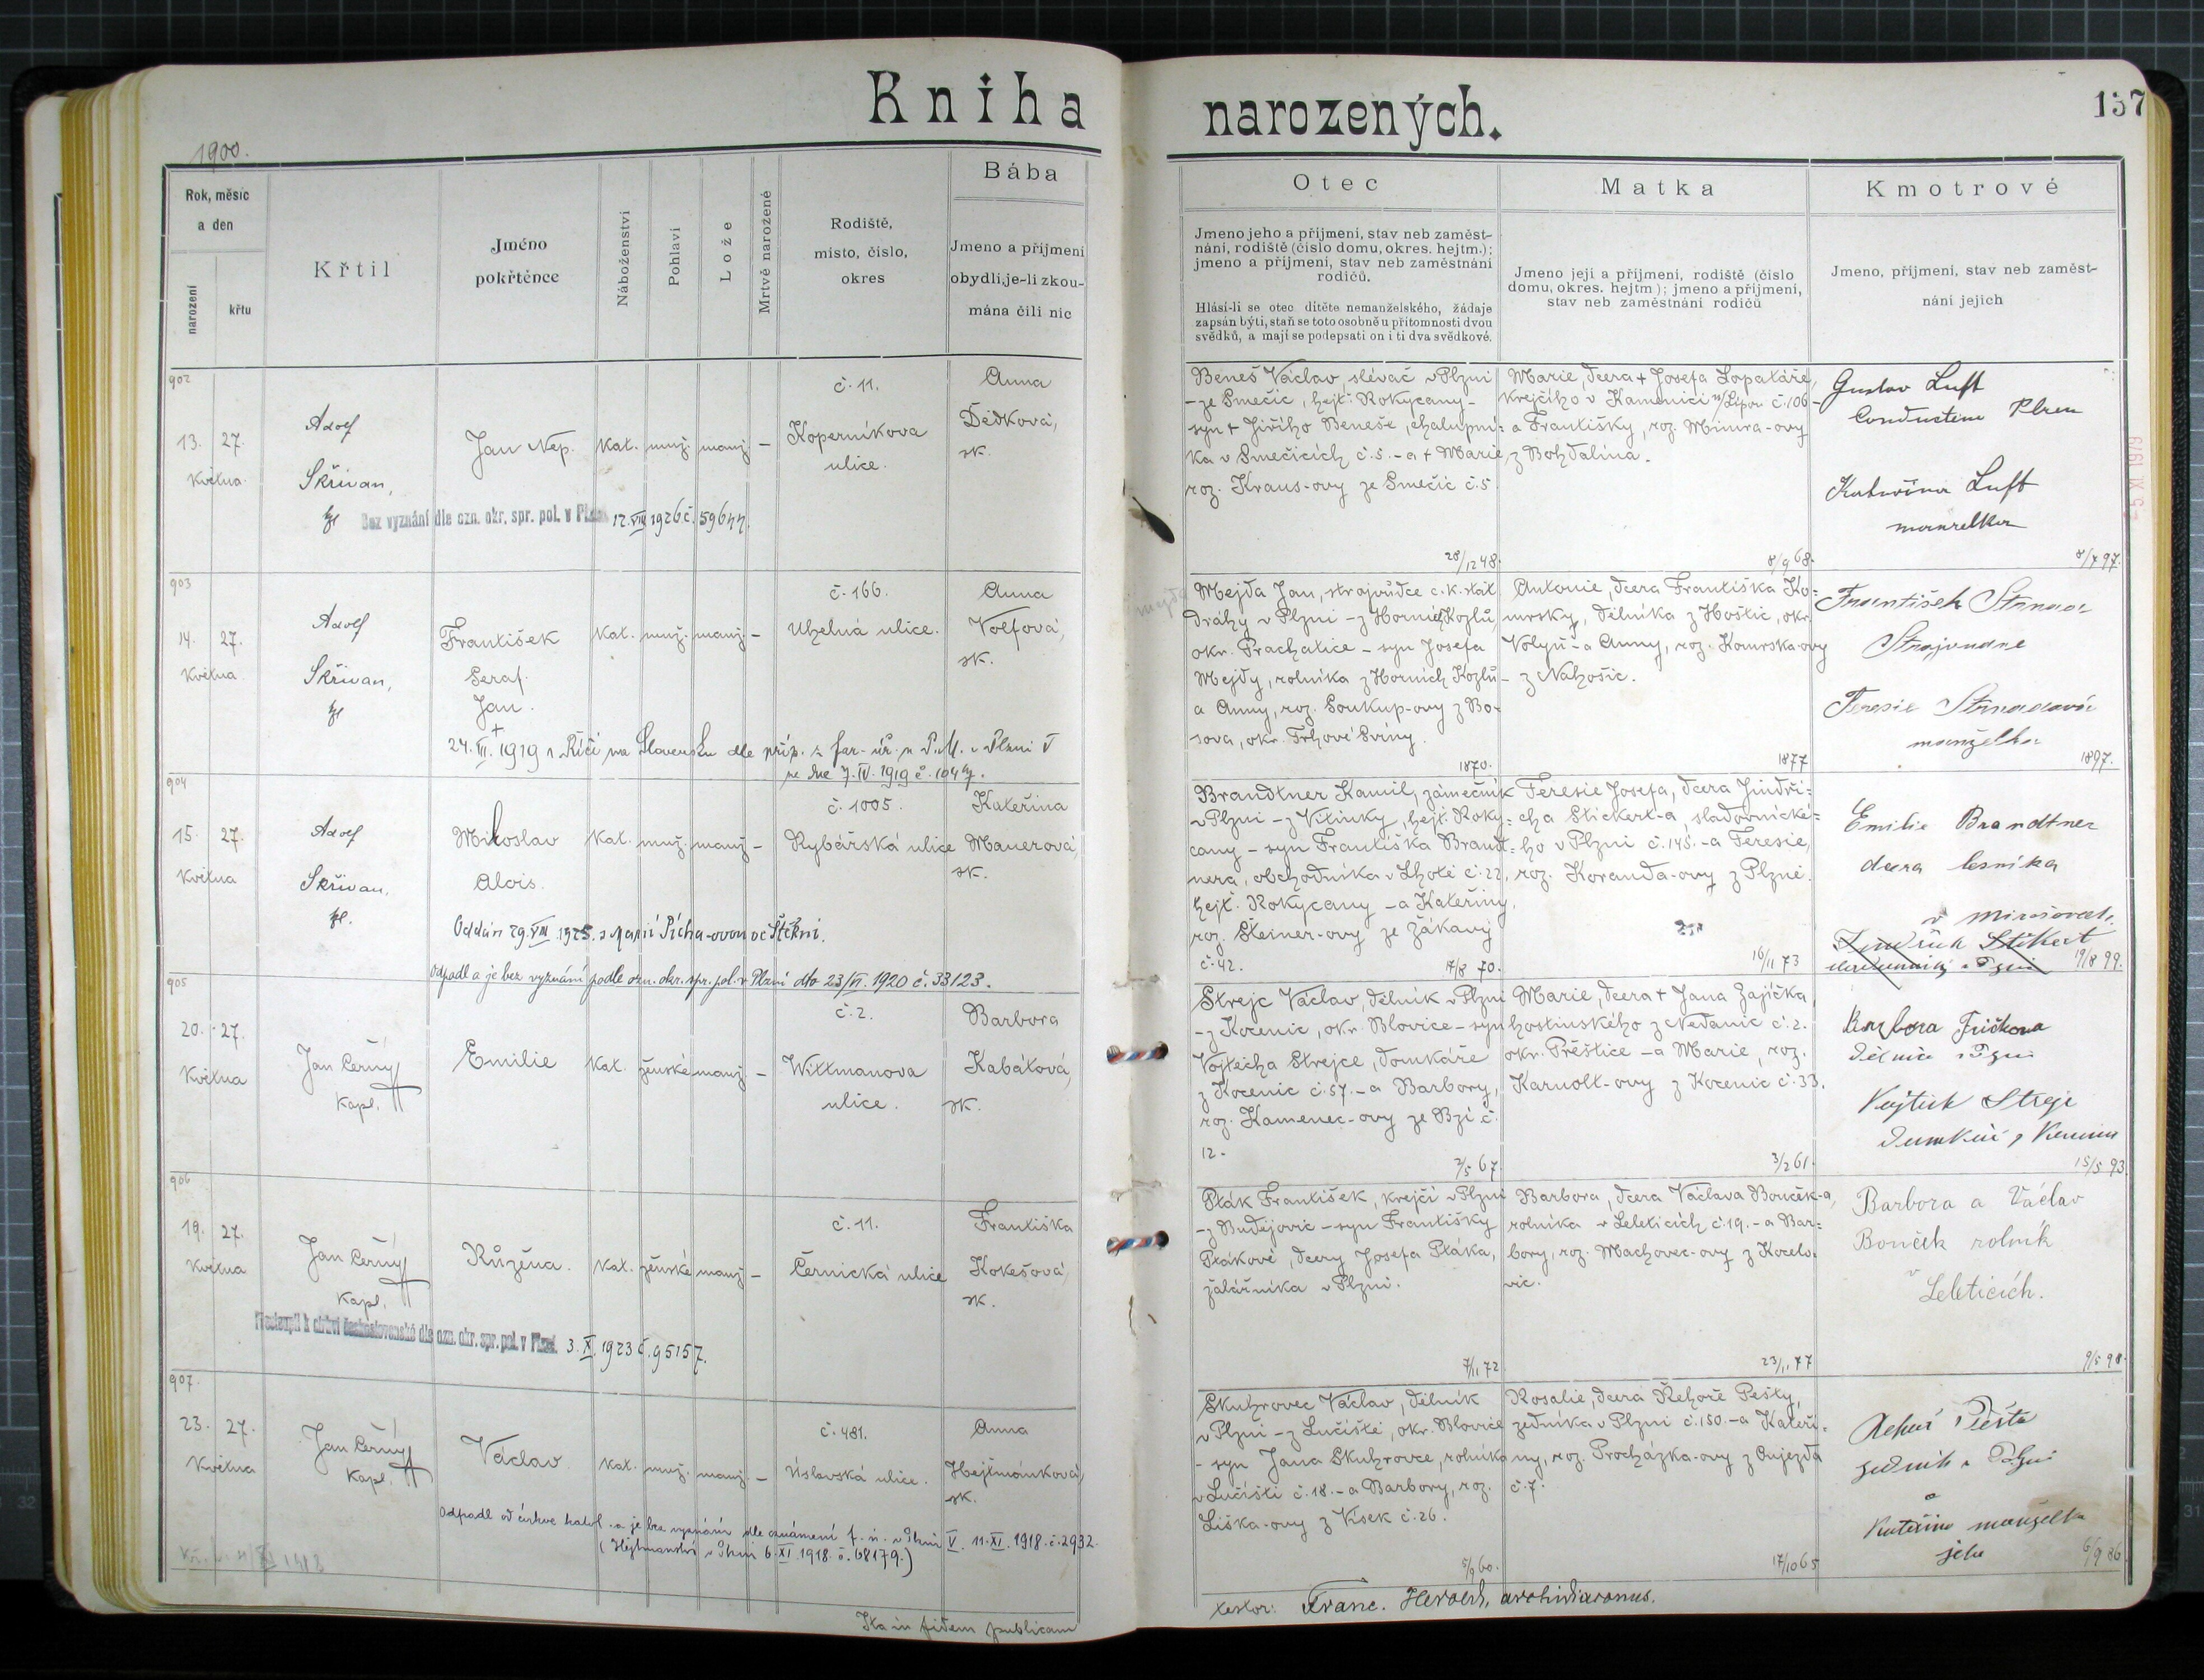 Kniha narozených.
157
1900.
Rok, měsíc
a den
narození
křtu
Křtil
Jméno
pokřtěnce
Náboženství
Pohlaví
Lože
Mrtvě narozené
Rodiště,
místo, číslo,
okres
Bába
Jmeno a příjmení
obydlí, je-li zkou-
mána čili nic
Otec
Jmeno jeho a příjmení, stav neb zaměst-
nání, rodiště (číslo domu, okres. hejtm.);
jmeno a příjmení, stav neb zaměstnání
rodičů.
Hlásí-li se otec dítěte nemanželského, žádaje
zapsán býti, staň se toto osobně u přítomnosti dvou
svědků, a mají se podepsati on i ti dva svědkové.
Matka
Jmeno její a příjmení, rodiště (číslo
domu, okres. hejtm); jmeno a příjmení,
stav neb zaměstnání rodičů
Kmotrové
Jmeno, příjmení, stav neb zaměst-
nání jejich
902
13. 27.
Května
Adolf
Skřivan,
Jan Nep.
kat. muž. manž. –
č. 11.
Koperníkova
ulice.
Anna
Dědková,
zk.
Bez vyznání dle ozn. okr. spr. pol. v Plzni 12. VIII 1926 č. 59677.
Beneš Václav, slévač v Plzni
– ze Smečic, hejt. Rokycany –
syn † Jiřího Beneše, chalupní=
ka v Smečicích č. 5. – a † Marie,
roz. Kraus-ovy ze Smečic č. 5
28/12 48.
Marie, dcera † Josefa Lopatáře,
krejčího v Kamenici n/Lipou č. 106 –
a Františky, roz. Mimra-ovy
z Bohdalína.
8/9 68.
Gustav Luft
Conducteur Plzen
Katarina Luft
manzelka
8/7 97.
903
14. 27.
Května
Adolf
Skřivan,
František
Seraf.
Jan.
kat. muž. manž. –
č. 166.
Uhelná ulice.
Anna
Volfová,
zk.
† 24. III. 1919 v Říči na Slovensku dle příp. z far. úř. u P. M. v Plzni V
ze dne 7. IV. 1919 č. 104
Mejda Jan, strojvůdce c. k. stát.
dráhy v Plzni – z Horních Kozlů,
okr. Prachatice – syn Josefa
Mejdy, rolníka z Horních Kozlů –
a Anny, roz. Soukup-ovy z Bo-
sova, okr. Trhové Sviny.
1870.
Antonie, dcera Františka Ko=
mrsky, dělníka z Hoštic, okr.
Volyň – a Anny, roz. Komrska-ovy
z Nahošic.
1877
František Strnad
Strojvudce
Teresie Strnadová
manželka
1897.
904
15. 27.
Května
Adolf
Skřivan,
Miloslav
Alois.
kat. muž. manž. –
č. 1005.
Rybářská ulice
Kateřina
Mauerová,
zk.
Oddán 29. VIII. 1925. s Marií Pícha-ovou ve Štěkni.
Odpadl a je bez vyznání podle ozn. okr. spr. pol. v Plzni dto 23/VI. 1920 č. 33123.
Brandtner Kamil, zámečník
v Plzni – z Vitinky, hejt. Roky=
cany – syn Františka Brandt=
nera, obchodníka v Lhotě č. 22,
hejt. Rokycany – a Kateřiny,
roz. Steiner-ovy ze Žákavy
č. 42.
17/8 70.
Teresie Josefa, dcera Jindři=
cha Stickert-a sladovnické=
ho v Plzni č. 145. – a Teresie,
roz. Koranda-ovy z Plzně.
16/11 73
Emilie Brandtner
dcera lesníka
v Mirošovech
19/8 99.
905
20. 27.
Května
Jan Černý
kapl.
Emilie
kat. ženské manž. –
č. 2.
Wittmanova
ulice.
Barbora
Kabátová,
zk.
Strejc Václav, dělník v Plzni
– z Kocenic, okr. Blovice – syn
Vojtěcha Strejce, domkáře
z Kocenic č. 57. – a Barbory,
roz. Kamenec-ovy ze Bzí č.
12. –
2/5 67.
Marie, dcera † Jana Zajíčka,
hostinského z Nedanic č. 2.
okr. Přeštice – a Marie, roz.
Karnolt-ovy z Kocenic č. 33.
3/2 61.
Barbora Fričkova
Vojtěch Strejc
15/5 93.
906
19. 27.
Května
Jan Černý
kapl.
Růžena.
kat. ženské manž. –
č. 11.
Černická ulice
Františka
Kokešová,
zk.
Přestoupil k církvi československé dle ozn. okr. spr. pol. v Plzni. 3. X. 1923 č. 95157.
Pták František, krejčí v Plzni
– z Budějovic – syn Františky
Ptákové, dcery Josefa Ptáka,
žalářníka v Plzni.
7/11 72
Barbora, dcera Václava Bouček-a,
rolníka v Leleticích č. 19. – a Bar=
bory, roz. Machovec-ovy z Kocelo=
vic.
23/11 77
Barbora a Václav
Bouček rolník
v Leleticích.
9/5 98.
907
23. 27.
Května
Jan Černý
kapl.
Václav.
kat. muž. manž. –
č. 481.
Úslavská ulice.
Anna
Hejtmánková,
zk.
Odpadl od církve katol. a je bez vyznání dle oznámení f. ú. v Plzni V. 11. XI. 1918. č. 2932.
(Hejtmanství v Plzni 6. XI. 1918. č. 68179.)
Skuhrovec Václav, dělník
v Plzni – z Lučiště, okr. Blovice
– syn Jana Skuhrovce, rolníka
v Lučišti č. 18. – a Barbory, roz.
Liška-ovy z Vísek č. 26.
5/9 60.
Rosalie, dcera Řehoře Pešty,
zedníka v Plzni č. 150. – a Kateři=
ny, roz. Procházka-ovy z Oujezda
č. 7.
17/10 65
Řehoř Pešta
zedník v Plzni
a
Kateřina manželka
jeho
6/9 86.
Ita in fidem publicam
testor: Franc. Herold, archidiaconus.